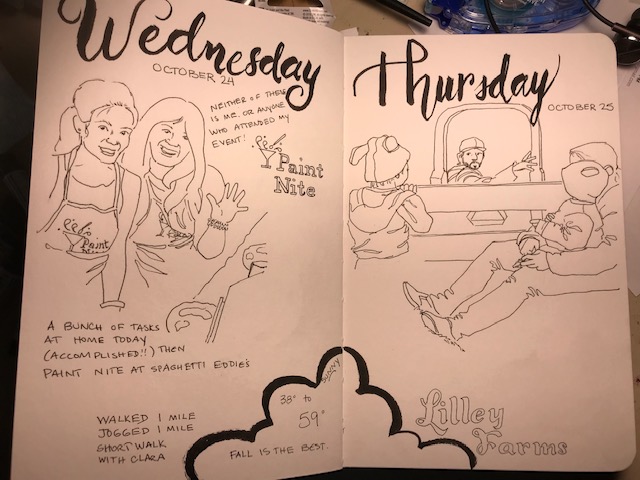 Wednesday
OCTOBER 24
NEITHER OF THESE
IS ME. OR ANYONE
WHO ATTENDED MY
EVENT!
Paint
Nite
Paint
Nite
A BUNCH OF TASKS
AT HOME TODAY
(ACCOMPLISHED!!) THEN
PAINT NITE AT SPAGHETTI EDDIE'S
WALKED 1 MILE
JOGGED 1 MILE
SHORT WALK
WITH CLARA
SUNNY
38° to
59°
FALL IS THE BEST.
Thursday
OCTOBER 25
Lilley
Farms